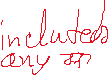 included
any